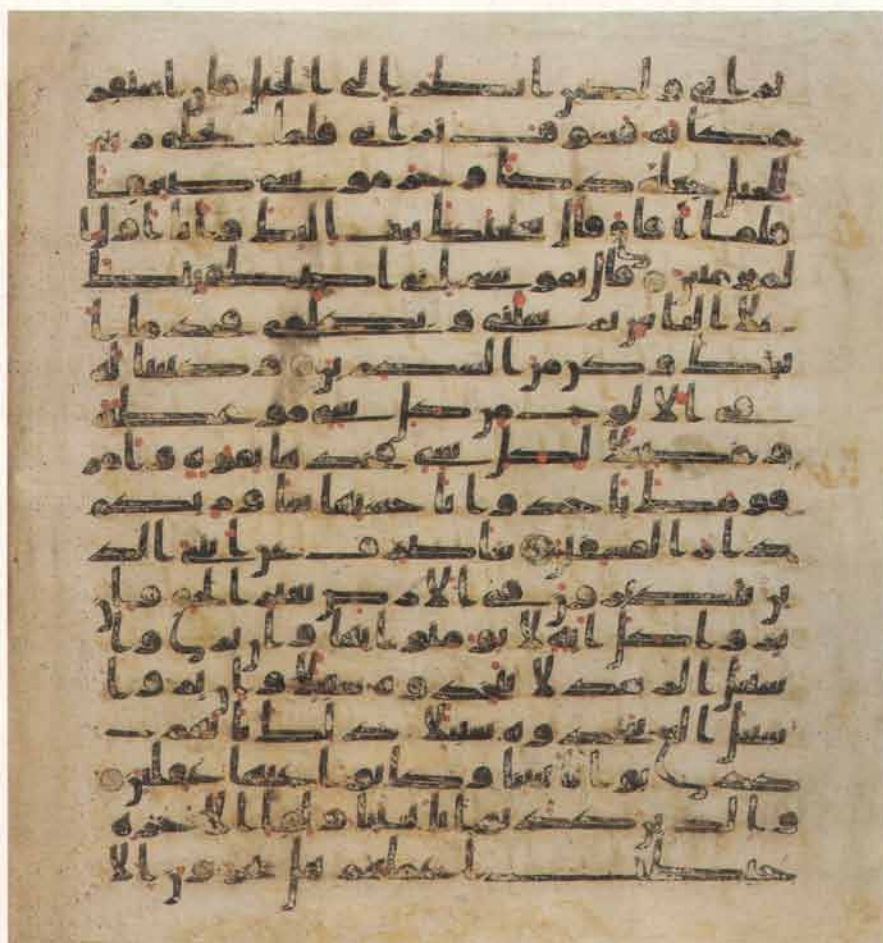 ترانى ولكن انظر الى الجبل فان استقر
مكانه فسوف ترانى فلما تجلى ربه
للجبل جعله دكا وخر موسى صعقا
فلما افاق قال سبحنك تبت اليك وانا اول ا
لمومنين قال يموسى انى اصطفيتك
على الناس برسلتى وبكلمى فخذ ما ا
تيتك وكن من الشكرين وكتبنا له
فى الالوح من كل شى موعظة
وتفصيلا لكل شى فخذها بقوة وامر
قومك ياخذوا باحسنها ساوريكم
دار الفسقين ساصرف عن ايتى الذ
ين يتكبرون فى الارض بغير الحق وان
يروا كل اية لا يومنوا بها وان يروا
سبيل الرشد لا يتخذوه سبيلا وان يروا
سبيل الغى يتخذوه سبيلا ذلك بانهم
كذبوا بايتنا وكانوا عنها غفلين
والذين كذبوا بايتنا ولقا الاخرة
حبطت اعملهم هل يجزون الا